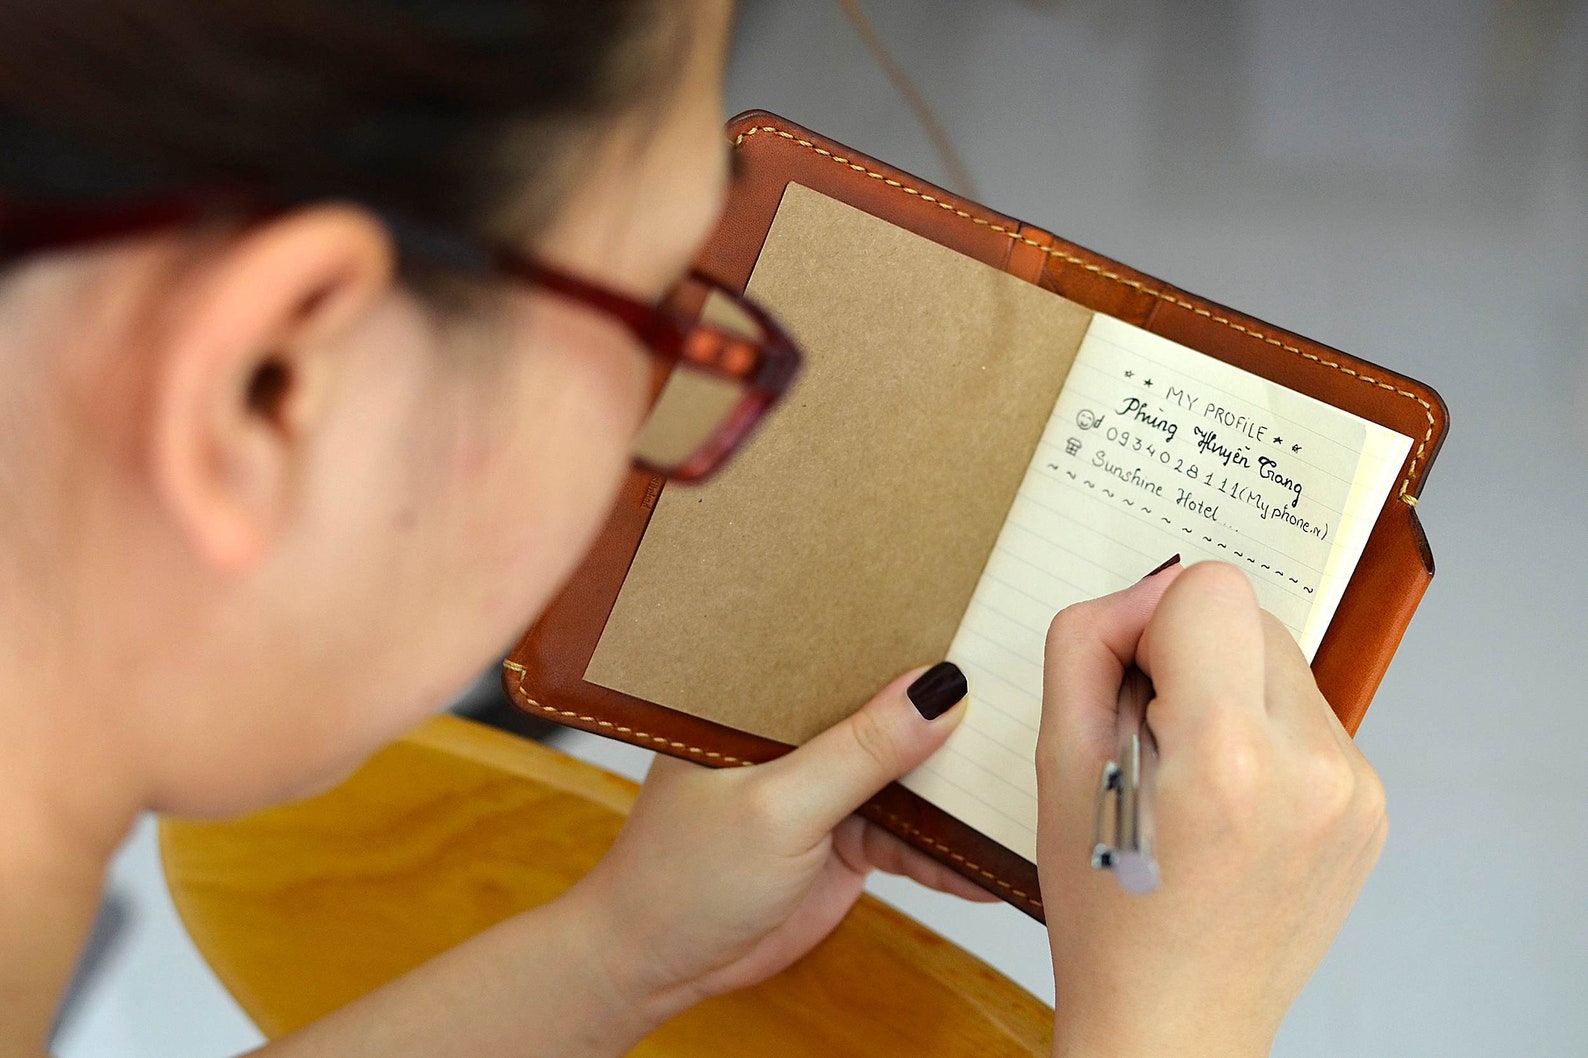 MY PROFILE
Phùng Huyền Trang
0934028111(My phone.n)
Sunshine Hotel...